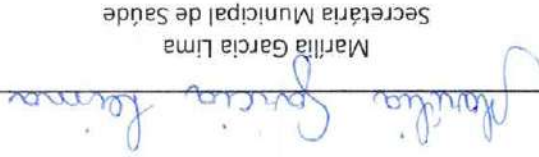 Marilia Garcia Lima
Marília Garcia Lima
Secretária Municipal de Saúde